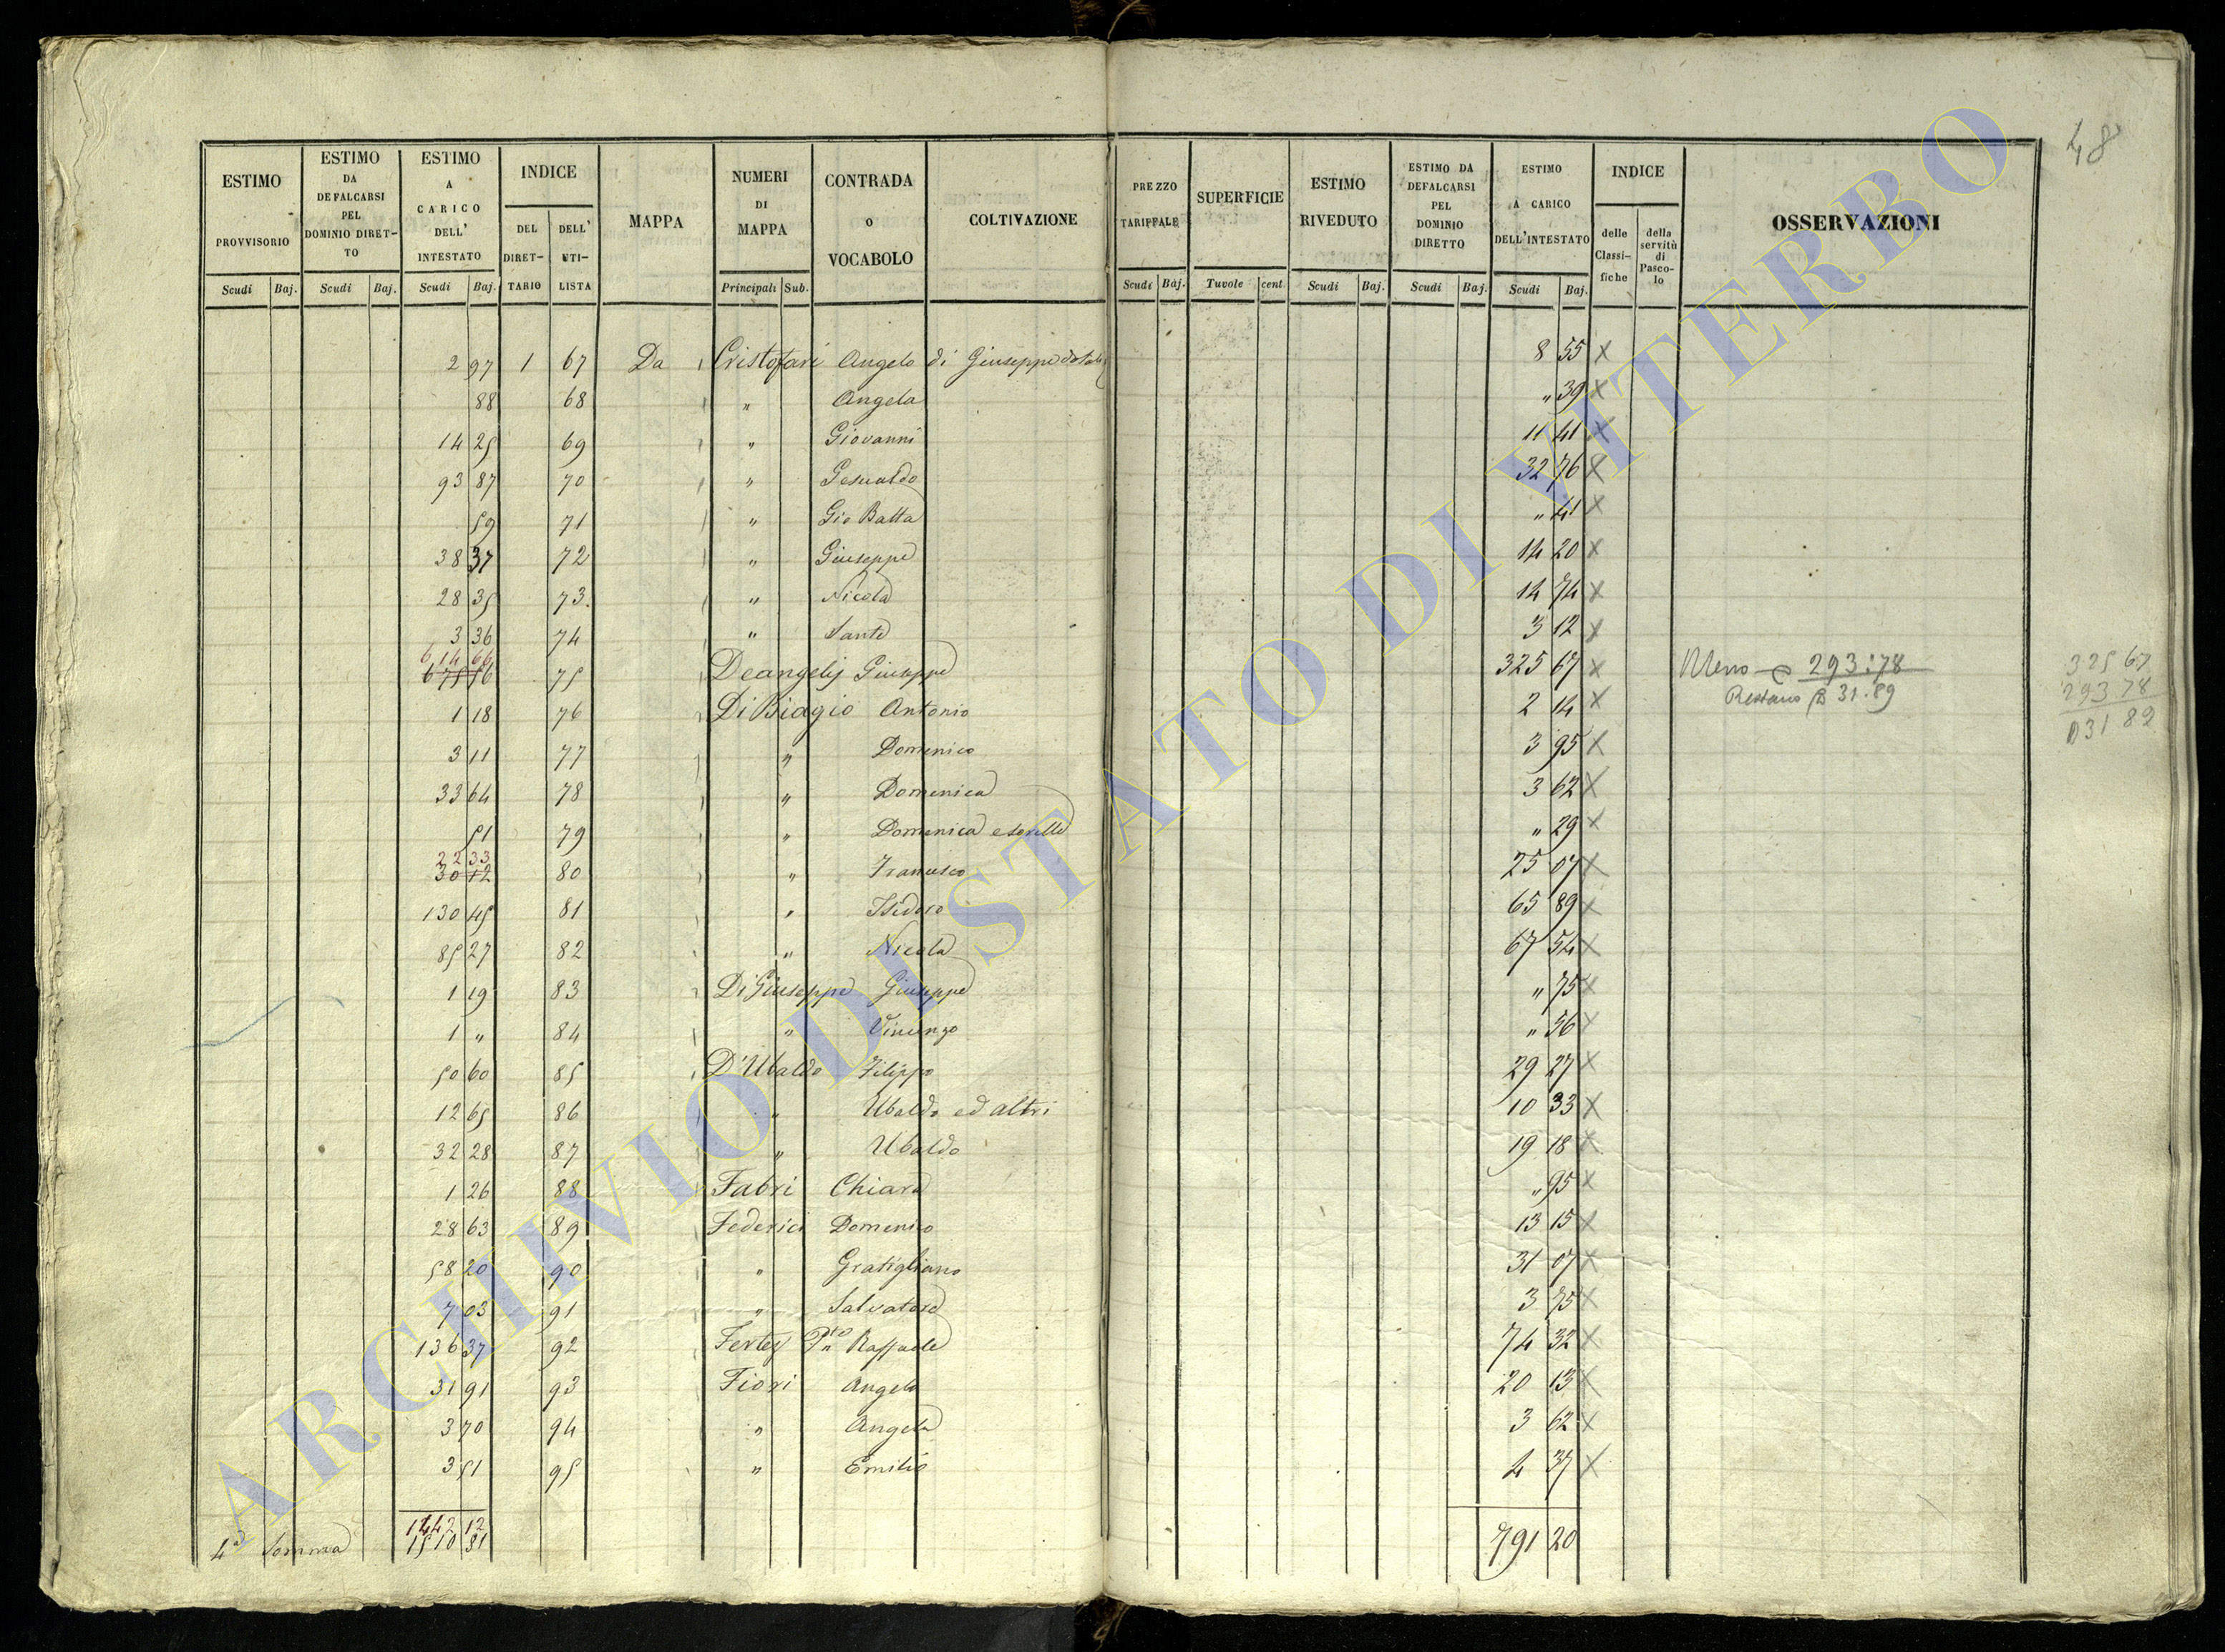 48
ESTIMO PROVVISORIO Scudi Baj.
ESTIMO DA DEFALCARSI PEL DOMINIO DIRET-TO Scudi Baj.
ESTIMO A CARICO DELL' INTESTATO Scudi Baj.
INDICE DEL DIRET-TARIO DELL' UTI-LISTA
MAPPA
NUMERI DI MAPPA Principali Sub.
CONTRADA o VOCABOLO
COLTIVAZIONE
PREZZO TARIFFALE Scudi Baj.
SUPERFICIE Tavole cent.
ESTIMO RIVEDUTO Scudi Baj.
ESTIMO DA DEFALCARSI PEL DOMINIO DIRETTO Scudi Baj.
ESTIMO A CARICO DELL'INTESTATO Scudi Baj.
INDICE delle Classi-fiche della servitù di Pasco-lo
OSSERVAZIONI
2 97 1 67 Da Cristofari Angelo di Giuseppe 8 55 x
88 68 " Angela " 39 x
14 25 69 " Giovanni 11 41 x
93 87 70 " Gesualdo 32 76 x
59 71 " Gio Batta " 41 x
38 37 72 " Giuseppe 14 20 x
28 35 73. " Nicola 14 74 x
3 36 74 " Sante 3 12 x
614 66
675 56 75 Deangelis Giuseppe 325 67 x Meno 293:78 325 67
1 18 76 DiBiagio Antonio 2 14 x Restano 31.89 293 78
3 11 77 " Domenico 3 95 x 031 89
33 64 78 " Domenica 3 62 x
51 79 " Domenica e sorelle " 29 x
22 33
30 12 80 " Francesco 25 07 x
130 45 81 " Isidoro 65 89 x
85 27 82 " Nicola 67 54 x
1 19 83 DiGiuseppe Giuseppe " 75 x
1 " 84 " Vincenzo " 56 x
50 60 85 D'Ubaldo Filippo 29 27 x
12 65 86 " Ubaldo ed altri 10 33 x
32 28 87 " Ubaldo 19 18 x
1 26 88 Fabri Chiara " 95 x
28 63 89 Federici Domenico 13 15 x
58 20 90 " Gratigliano 31 07 x
7 03 91 " Salvatore 3 75 x
136 37 92 Raffaele 74 32 x
31 91 93 Fiori Angelo 20 13 x
3 70 94 " Angela 3 62 x
3 51 95 " Emilio 4 37 x
1442 12
4a Somma 1510 81 791 20
ARCHIVIO DI STATO DI VITERBO